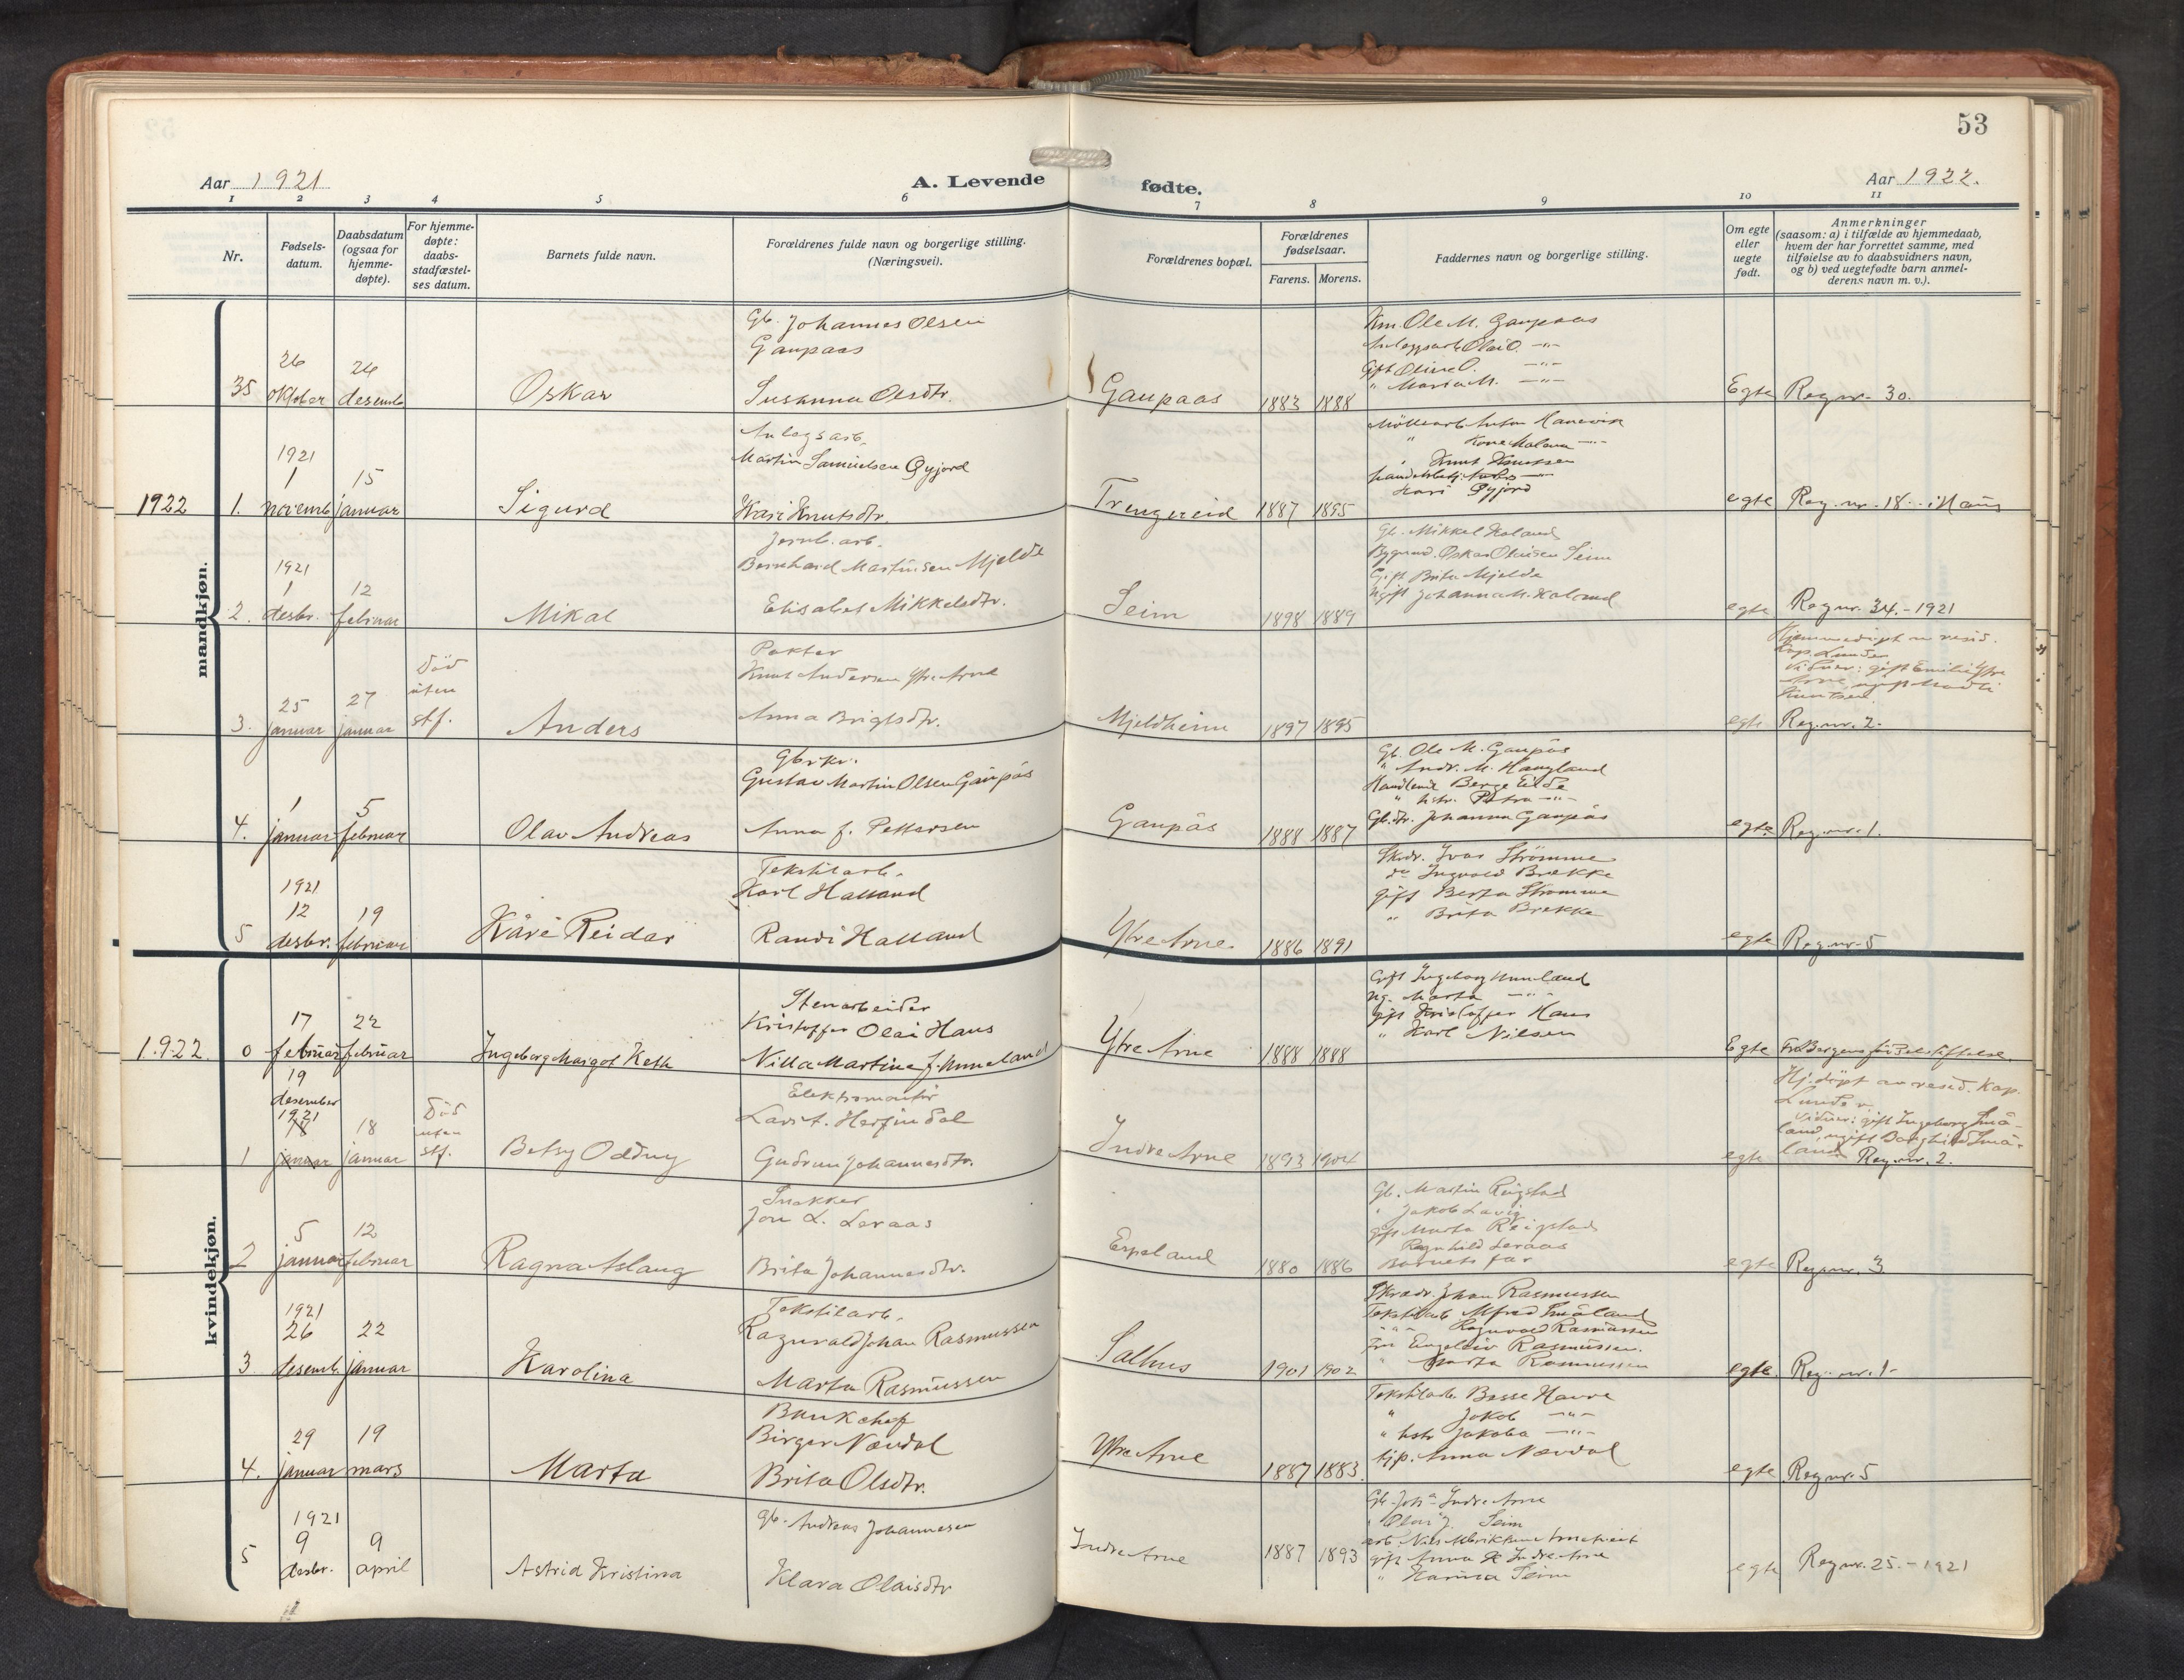 53
Aar 1921
A. Levende
fødte.
Aar 1922.
1 2 3 4 5 6 7 8 9 10 11
Nr.
Fødsels-
datum.
Daabsdatum
(ogsaa for
hjemme-
døpte).
For hjemme-
døpte:
daabs-
stadfæstel-
ses datum.
Barnets fulde navn.
Forældrenes fulde navn og borgerlige stilling.
(Næringsvei).
Forældrenes bopæl.
Forældrenes
fødselsaar.
Farens. Morens.
Faddernes navn og borgerlige stilling.
Om egte
eller
uegte
født.
Anmerkninger
(saasom: a) i tilfælde av hjemmedaab,
hvem der har forrettet samme, med
tilføielse av to daabsvidners navn,
og b) ved uegtefødte barn anmel-
derens navn m. v.).
mandkjøn.
35
26
oktober
24
desemb
Oskar
Gb. Johannes Olsen
Gaupaas
Susanna Olsdtr.
Gaupaas
1883 1888
Km. Ole M. Gaupaas
Anlegsarb. Olai O. -"-
Gift Oline O. -"-
" Maria M. -"-
Egte
Reg nr. 30.
1922
1.
1921
1
novemb
15
januar
Sigurd
Anlegsarb.
Martin Samuelsen Øyjord
Kari Knutsdtr.
Trengereid
1887 1895
Anton Hanevik
" Kone Malena -"-
" Knut Knutsen
Kari Øyjord
egte
Reg. nr. 18 i Haus
2.
1921
1
desbr.
12
februar
Mikal
Jernb. arb.
Bernhard Martinsen Mjelde
Elisabet Mikkelsdtr.
Seim
1898 1889
Gb. Mikkel Haland
Oskar Olaisen Seim
Gift Brita Mjelde
Ugift Johanna M. Haland
egte
Reg nr. 34. - 1921
3.
25
januar
27
januar
Död
uten
stf.
Anders
Pakter
Knut Andersen Ytre Arne
Anna Brigtsdtr.
Mjeldheim
1897 1895
egte
Hjemmedöpt av resid.
Kap. Lunde
Vidner: gift Emilie Ytre
Arne, ugift
Knutsen
Reg. nr. 2.
4.
1
januar
5
februar
Olav Andreas
Gbrkr.
Gustav Martin Olsen Gaupås
Anna f. Pettersen
Gaupås
1888 1887
Gb. Ole M. Gaupås
" Andr. M. Haugland
Handlende Berge Eide
" hstr. Petra -"-
Gb.dtr. Johanna Gaupås
egte
Reg. nr. 1.
5
1921
12
desbr.
19
februar
Kåre Reidar
Tekstilarb.
Karl Halland
Randi Halland
Ytre Arne
1886 1891
Skrdr. Ivar Strömme
do Ingvald Brekke
gift Berta Strömme
" Brita Brekke
egte
Reg. nr. 5
kvindekjøn.
1922.
0
17
februar
22
februar
Ingeborg Margot Keth
Stenarbeider
Kristoffer Olai Haus
Nilla Martina f. Unneland
Ytre Arne
1888 1888
Gift Ingeborg Unneland
ug. Marta -"-
gift Kristoffer Haus
" Karl Nilsen
Egte
Fra Bergens födselsstiftelse
1
19
desember
1921
18
januar
18
januar
Död
uten
stf.
Betsy Oddny
Elektromontör
Lars T. Herfindal
Gudrun Johannesdtr.
Indre Arne
1893 1904
egte
Hj. döpt av resid. Kap.
Lunde
Vidner: gift Ingeborg Små-
land, ugift Borghild Små-
land. Reg. nr. 2.
2
5
januar
12
februar
Ragna Aslaug
Snekker
Jon L. Leraas
Brita Johannesdtr.
Espeland
1880 1886
Gb. Martin Reigstad
" Jakob Lavig
gift Marta Reigstad
Ragnhild Leraas
Barnets far
egte
Reg. nr. 3
3
1921
26
desemb.
22
januar
Karolina
Tekstilarb.
Ragnvald Johan Rasmussen
Marta Rasmussen
Salhus
1901 1902
Skrædr. Johan Rasmussen
Tekstilarb Alfred Småland
" Ragnvald Rasmussen
Fru Engeline Rasmussen.
" Marta Rasmussen
egte.
Reg. nr. 1-
4.
29
januar
19
mars
Marta
Bankchef
Birger Nævdal
Brita Olsdtr.
Ytre Arne
1887 1883
Tekstilarb Basse Havre
" Jakob -"-
" hstr Jakoba -"-
tjp. Anna Nævdal
egte
Reg nr. 5
5
1921
9
desbr.
9
april
Astrid Kristina
gb. Andreas Johannesen
Klara Olaisdtr
Indre Arne
1887 1893
Gb. Johs Indre Arne
" Olai J. Seim
arb. Nils
gift Anna Indre Arne
" Karina Seim
egte
Reg nr. 25. - 1921